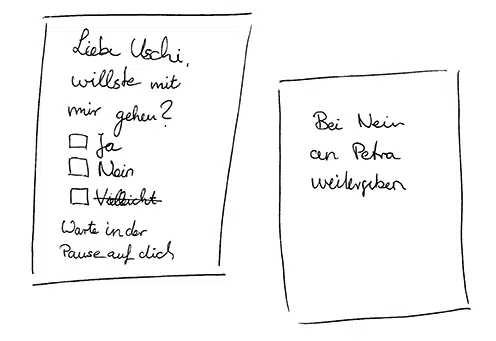 Liebe Uschi,
willste mit
mir gehen?
Ja
Nein
Vielleicht
Warte in der
Pause auf dich
Bei Nein
an Petra
weitergeben